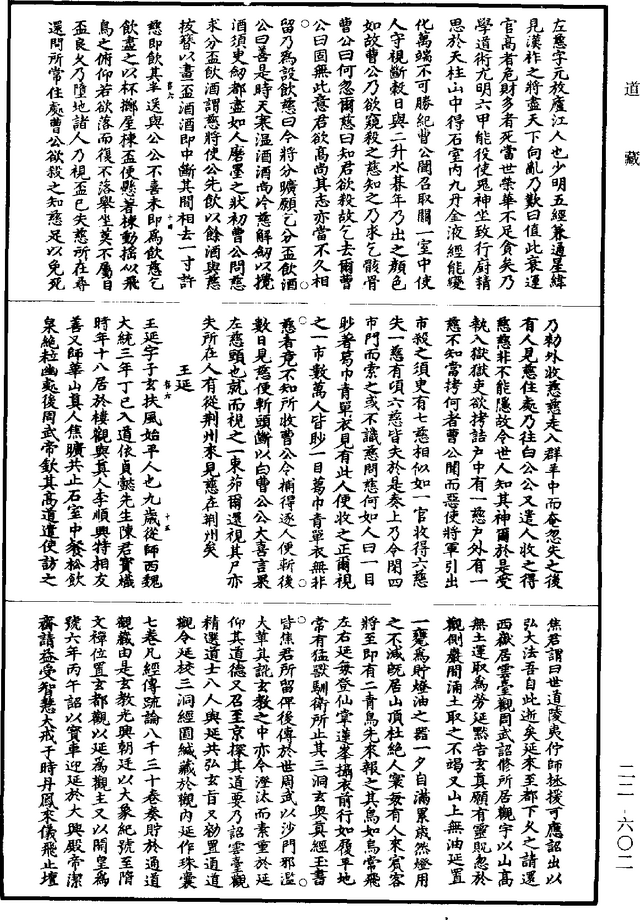 道藏
左慈字元放廬江人也少明五經兼通星緯
見漢祚之將盡天下向亂乃歎曰值此衰運
官高者危財多者死當世榮華不足貪矣乃
學道術尤明六甲能役使鬼神坐致行廚精
思於天柱山中得石室內九丹金液經能變
化萬端不可勝紀曹公聞召取關一室中使
人守視斷穀日與二升水朞年乃出之顏色
如故曹公乃欲竊殺之慈知之乃求乞骸骨
曹公曰何忽爾慈曰知君欲殺故乞去爾曹
公曰固無此意君欲高尚其志亦當不久相
留乃為設飲慈曰今將分曠願乞分盃飲酒
公曰善是時天寒溫酒酒尚冷慈解劒以攪
酒須臾劒都盡如人磨墨之狀初曹公問慈
求分盃飲酒謂慈將使公先飲以餘酒與慈
拔簪以畫盃酒酒即中斷其間相去一寸許
慈即飲其半送與公公不喜未即為飲慈乞
飲盡之以杯擲屋棟盃便懸著棟動搖似飛
鳥之俯仰若欲落而復不落舉坐莫不屬目
盃良久乃墮地諸人乃視盃已失慈所在尋
還問所常住處曹公欲殺之知慈足以免死
乃勑外收慈慈走入群羊中而奄忽失之後
有人見慈住處乃往白公公又遣人收之得
慈慈非不能隱故令世人知其神爾於是受
執入獄獄吏欲拷詰戶中有一慈戶外有一
慈不知當拷何者曹公聞而惡使將軍引出
市殺之須臾有七慈相似如一官收得六慈
失一慈有頃六慈皆失於是奏上乃令閉四
市門而索之或不識慈問慈何如人曰一目
眇著葛巾青單衣見有此人便收之正爾視
之一市數萬人皆眇一目葛巾青單衣無非
慈者竟不知所收曹公令捕得逐人便斬後
數日見慈便斬頭斷以白曹公公大喜言果
左慈頭也就而視之一束茆爾還視其尸亦
失所在人有從荆州來見慈在荆州矣
王延
王延字子玄扶風始平人也九歲從師西魏
大統三年丁巳入道依貞懿先生陳君寶熾
時年十八居於樓觀與真人李順興特相友
善又師華山真人焦曠共止石室中餐松飲
泉絶粒幽處後周武帝欽其高道遣使訪之
焦君謂曰世道陵夷佇師拯援可應詔出以
弘大法吾自此逝矣延來至都下久之請還
西嶽居雲臺觀周武詔修所居觀宇以山高
無土運取為勞延默告玄真願有靈貺忽於
觀側巖間涌土取之不竭又山上無油延置
一甕為貯燈油之器一夕自滿累歲然燈用
之不減旣居山頂杜絶人寰每有人來賓客
將至即有二青鳥先來報之其鳥如烏常飛
左右延每登仙掌蓮峯攝衣前行如履平地
常有猛獸馴衛所止其三洞玄奧真經玉書
皆焦君所留俾後傳於世周武以沙門邪濫
大革其訛玄教之中亦令澄汰而素重於延
仰其道德又召至京探其道要乃詔雲臺觀
精選道士八人與延共弘玄旨又勑置通道
觀令延校三洞經圖緘藏於觀內延作珠囊
七卷凡經傳疏論八千三十卷奏貯於通道
觀藏由是玄教光興朝廷以大象紀號至隋
文禪位置玄都觀以延為觀主又以開皇為
號六年丙午詔以寶車迎延於大興殿帝潔
齋請益受智慧大戒于時丹鳳來儀飛止壇
二二·六〇二